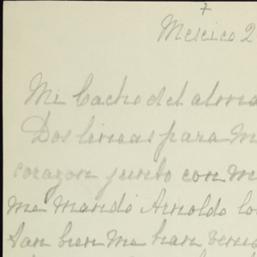 Mexico 2
Mi Cacho del alma
Dos lineas para
corazon junto con
me mandó Arnoldo
tan bien me han